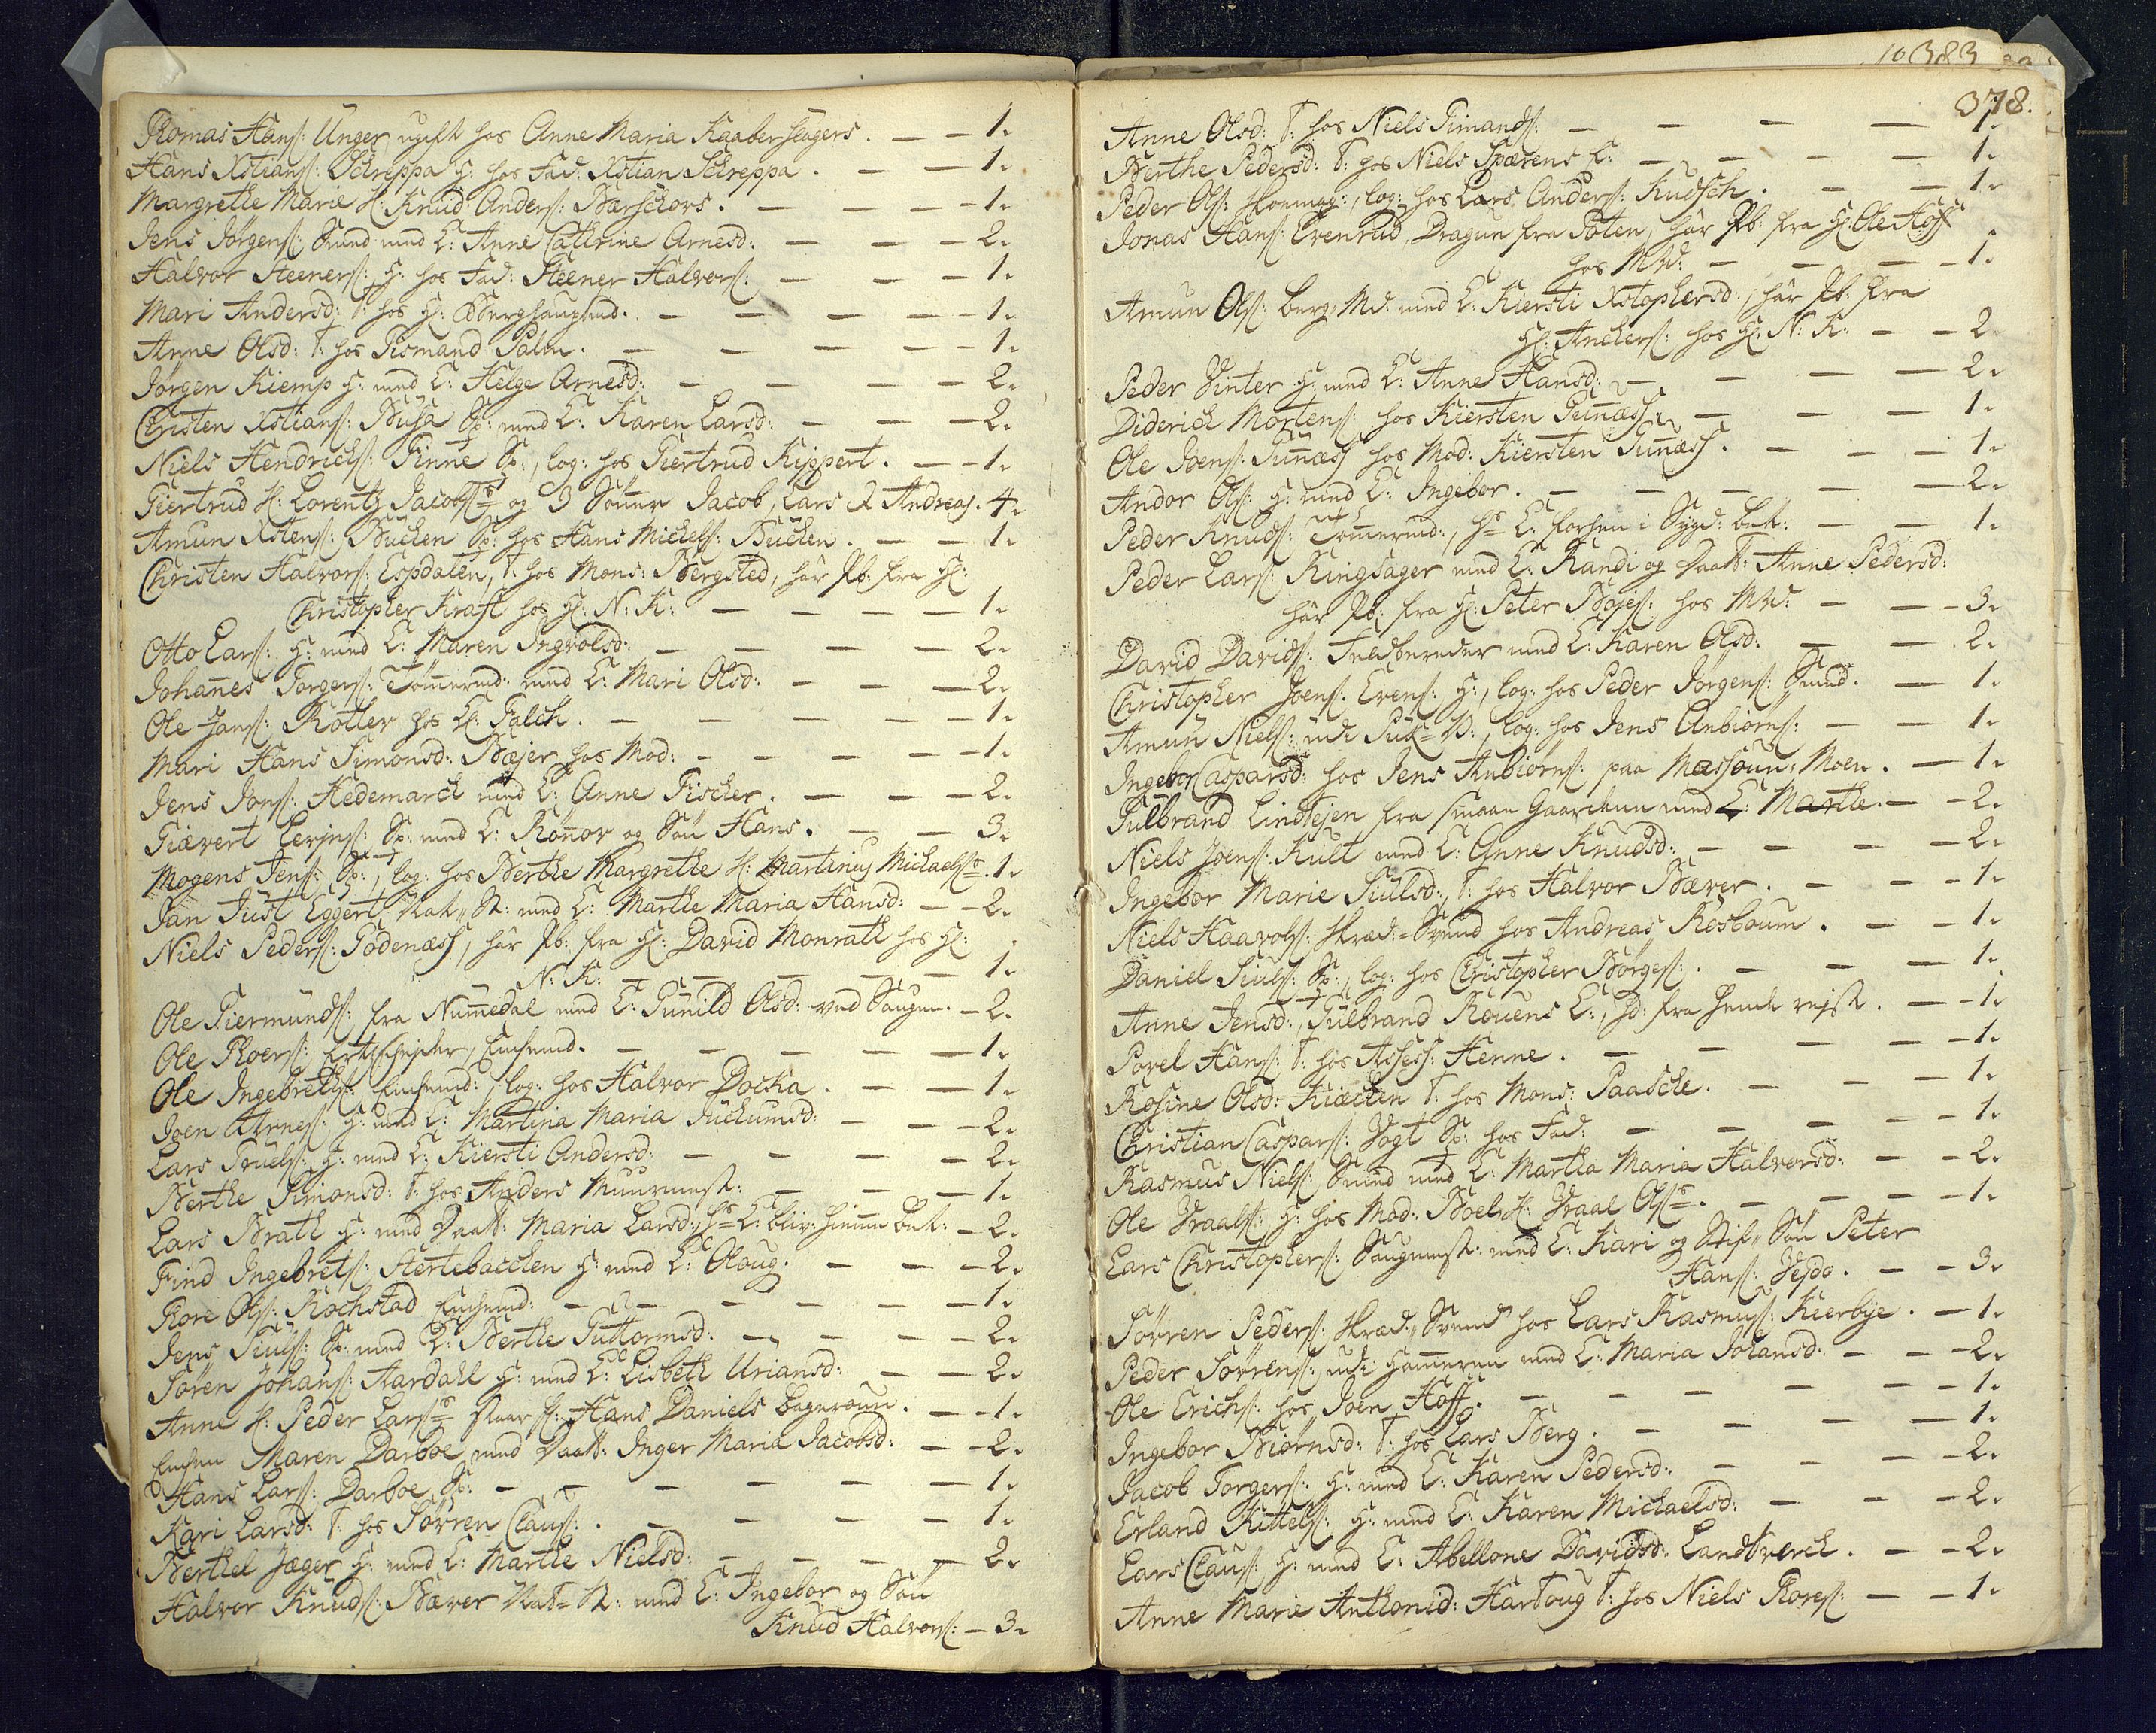 Thomas Hans: Unger ugift hos Anne Maria Kaaberslagers. — — 1.
Hans Xstians: Schreppa H: hos Fad: Xstian Schreppa. — — 1.
Margrethe Marie H: Knud Anders: Bærskors. — — — 1.
Jens Jørgens: Smed med E: Anne Cathrine Arnesd: — — — 2.
Halvor Steeners: H: hos Fad: Steener Halvors: — — — 1.
Mari Andersd: T: hos H: Berghauptmd. — — — — 1.
Anne Olsd: T: hos Tismand Palm. — — — — 1.
Jørgen Kiemp H: med E: Helge Arnesd: — — — — 2.
Christen Xstians: Busa Sp: med E: Karen Larsd: — — — 2.
Niels Hendrichs: Finne Sp:, log: hos Giertrud Kippert. — — 1.
Giertrud H: Lorentz Jacobs: og 3 Sönner Jacob, Lars & Andreas. 4.
Amun Xstens: Buchen Sp: hos Hans Michels: Buchen. — — 1.
Christen Halvors: Espdalen, T: hos Mons: Bergsted, har Pb: fra H:
Christopher Kraft hos H: N: K: — — — — 1.
Otto Lars: H: med E: Maren Ingvolsd: — — — — 2.
Johannes Torgers: Tömermd: med E: Mari Olsd: — — — 2.
Ole Jans: Kotler hos H: Falch. — — — — 1.
Mari Hans Simonsd: Bæjer hos Mod: — — — — 1.
Jens Jons: Hedemarch med E: Anne Fischer. — — — 2.
Giævert Lerjns: Sp: med E: Rönnor og Sön Hans. — — 3.
Mogens Jens: Sp:, log: hos Berthe Margrethe H: Martinus Michaels: 1.
Jan Just Eggert, med E: Marthe Maria Hansd: — — 2.
Niels Peders: Godenæss, har Pb: fra H: David Monrath hos H:
N: K: — — — — — 1.
Ole Giermunds: fra Nummedal med E: Gunild Olsd: ved Saugen. — 2.
Ole Thoers: — — — — — 1.
Ole Ingebreths: log: hos Halvor Docka. — — 1.
Joen Arnes: H: med E: Martina Maria Juchumsd: — — — 2.
Lars Truels: H: med E: Kiersti Andersd: — — — — 2.
Berthe Simonsd: T: hos Anders Muurmest: — — — 1.
Lars Brath H: med Daatt: Maria Larsd:, E: bliv: hiemme bet: — 2.
Find Ingebrets: Stertebacchen H: med E: Oloug. — — — 2.
Thore Ols: Rochstad — — — — 1.
Jens Siuls: Sp: med E: Berthe Guttormsd: — — — 2.
Søren Johans: Aardahl H: med E: Lisbeth Uriansd: — — 2.
Anne H: Peder Lars: Hans Daniels Bageroun. — — 1.
Enchen Maren Darboe med Daatt: Inger Maria Jacobsd: — — 2.
Hans Lars: Darboe Sp: — — — — 1.
Kari Larsd: T: hos Sörren Claus: — — — — 1.
Berthel Jæger H: med E: Marthe Nielsd: — — — — 2.
Halvor Knuds: Bæver med E: Ingebor og Sön
Knud Halvors: — 3.
10 383
378.
Anne Olsd: T: hos Niels Timands: — — — — 1.
Berthe Pedersd: T: hos Niels Spærens E: — — — — 1.
Peder Ols: log: hos Lars Anders: Kudsch. — — 1.
Jonas Hans: Evenrud, Dragun fra Toten, har Pb: fra H: Ole Hoff
hos — — — — 1.
Amun Ols: Berg, med E: Kiersti Xstophersd:, har Pb: fra
H: Anchers: hos H: N: K: — — 2.
Peder Vinter H: med E: Anne Hansd: — — — — 2.
Diderich Mortens: hos Kiersten Tunnæss: — — — 1.
Ole Joens: Tunnæss hos Mod: Kiersten Tunnæss. — — — 1.
Andor Ols: H: med E: Ingebor. — — — — — 2.
Peder Knuds: Tömermd:, E: forhen i bet: — — 1.
Peder Lars: Ringsager med E: Randi og Daatt: Anne Pedersd:
har Pb: fra H: Peter Bojes: hos — — — 3.
David Davids: med E: Karen Olsd: — — 2.
Christopher Joens: Evens: H:, log: hos Peder Jørgens: Smed. — 1.
Amun Niels: log: hos Jens Anbiørns: — — 1.
Ingebor Caspersd: hos Jens Anbiørns: paa Moen. — 1.
Gulbrand Lindtejen fra Smaae Gaardene med E: Marthe. — — 2.
Niels Joens: Kult med E: Anne Knudsd: — — — — 2.
Ingebor Marie Siulsd:, T: hos Halvor Bæver. — — — 1.
Niels Haavols: Skræd: Svend hos Andreas Rosboum. — — 1.
Daniel Siuls: Sp:, log: hos Christopher Börges: — — — 1.
Anne Jensd:, Gulbrand Rouens E:, — — 1.
Povel Hans: T: hos Assess: Henne. — — — — 1.
Rosine Olsd: Kiæchen T: hos Mons: Paasche. — — — 1.
Christian Caspars: Vogt Sp: hos Fad: — — — — 1.
Rasmus Niels: Smed med E: Martha Maria Halvorsd: — — 2.
Ole Vraals: H: hos Mod: Boel H: Vraal Ols: — — — 1.
Lars Christophers: Saugmest: med E: Kari og Stif-Sön Peter
Hans: Vejdo. — — 3.
Sörren Peders: Skræd: Svend hos Lars Rasmus: Kierbye. — 1.
Peder Sörrens: med E: Maria Johansd: — — 2.
Ole Erichs: hos Joen Hoff. — — — — — 1.
Ingebor Biörnsd: T: hos Lars Berg. — — — — 1.
Jacob Torgers: H: med E: Karen Pedersd: — — — 2.
Erland Kittels: H: med E: Karen Michaelsd: — — — 2.
Lars Claus: H: med E: Abellone Davidsd: Landtverch. — — 2.
Anne Marie Anthonid: Hartoug T: hos Niels Thores: — — 1.